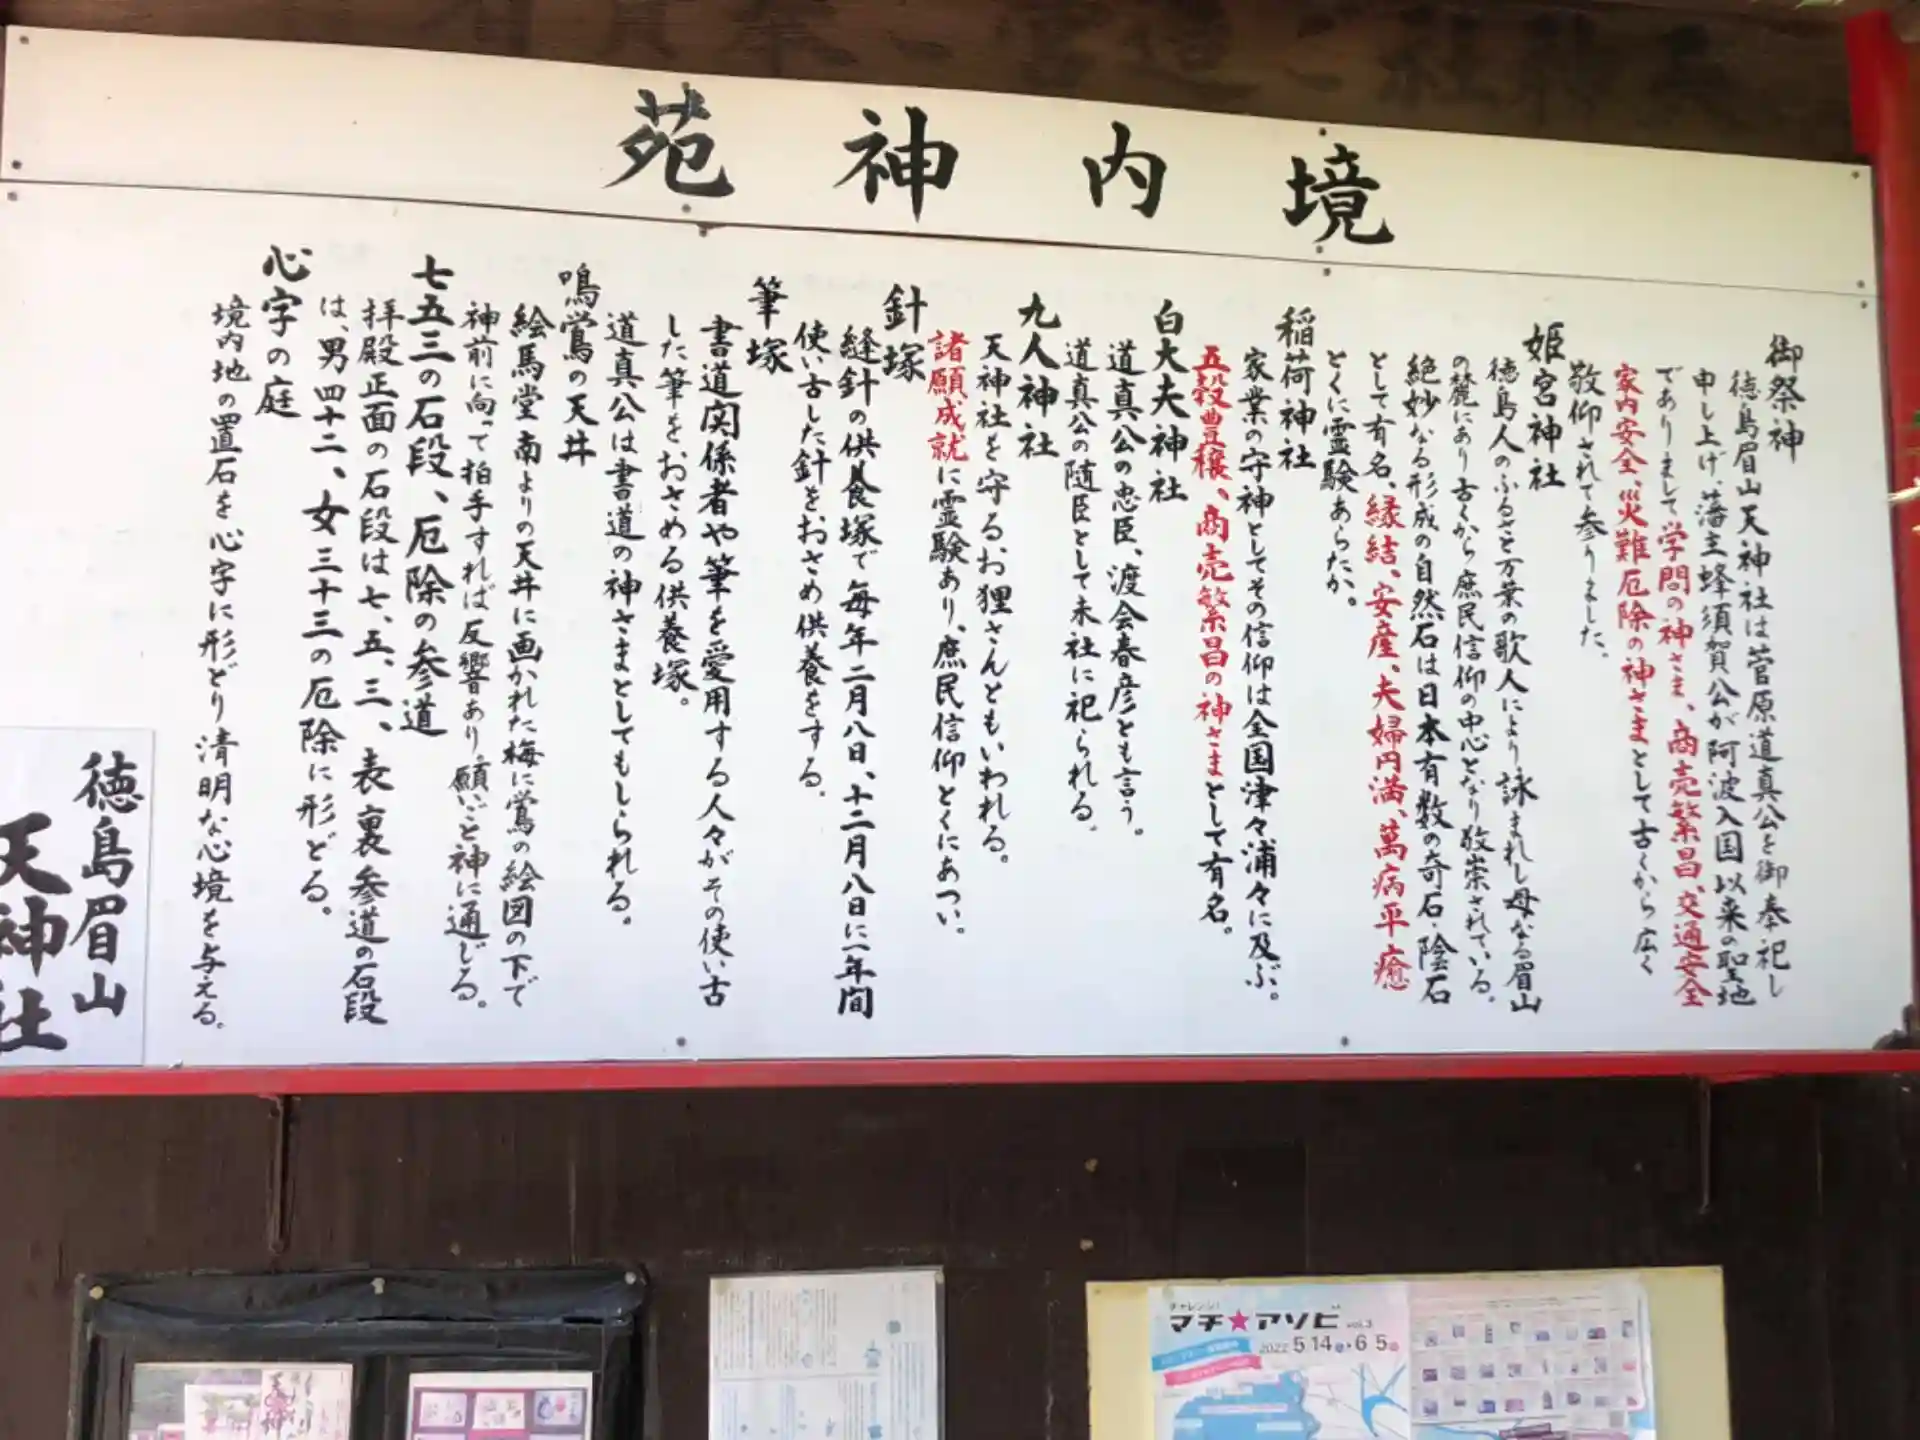 境内神苑
御祭神
徳島眉山天神社は菅原道真公を御奉祀し
申し上げ、藩主蜂須賀公が阿波入国以来の聖地
でありまして学問の神さま、商売繁昌、交通安全
家内安全、災難厄除の神さまとして古くから広く
敬仰されて参りました。
姫宮神社
徳島人のふるさと万葉の歌人により詠まれし母なる眉山
の麓にあり古くから庶民信仰の中心となり敬崇されている。
絶妙なる形成の自然石は日本有数の奇石・陰石
として有名、縁結、安産、夫婦円満、萬病平癒
とくに霊験あらたか。
稲荷神社
家業の守神としてその信仰は全国津々浦々に及ぶ。
五穀豊穣、商売繁昌の神さまとして有名。
白大夫神社
道真公の忠臣、渡会春彦とも言う。
道真公の随臣として末社に祀られる。
九人神社
天神社を守るお狸さんともいわれる。
諸願成就に霊験あり、庶民信仰とくにあつい。
針塚
縫針の供養塚で毎年二月八日、十二月八日に一年間
使い古した針をおさめ供養をする。
筆塚
書道関係者や筆を愛用する人々がその使い古
した筆をおさめる供養塚。
道真公は書道の神さまとしてもしられる。
鳴鴬の天井
絵馬堂南よりの天井に画かれた梅に鴬の絵図の下で
神前に向って拍手すれば反響あり、願いごと神に通じる。
七五三の石段、厄除の参道
拝殿正面の石段は七、五、三、表裏参道の石段
は、男四十二、女三十三の厄除に形どる。
心字の庭
境内地の置石を心字に形どり清明な心境を与える。
徳島眉山
天神社
チャレンジ!
マチ★アソビ vol.3
2022 5.14 6.5